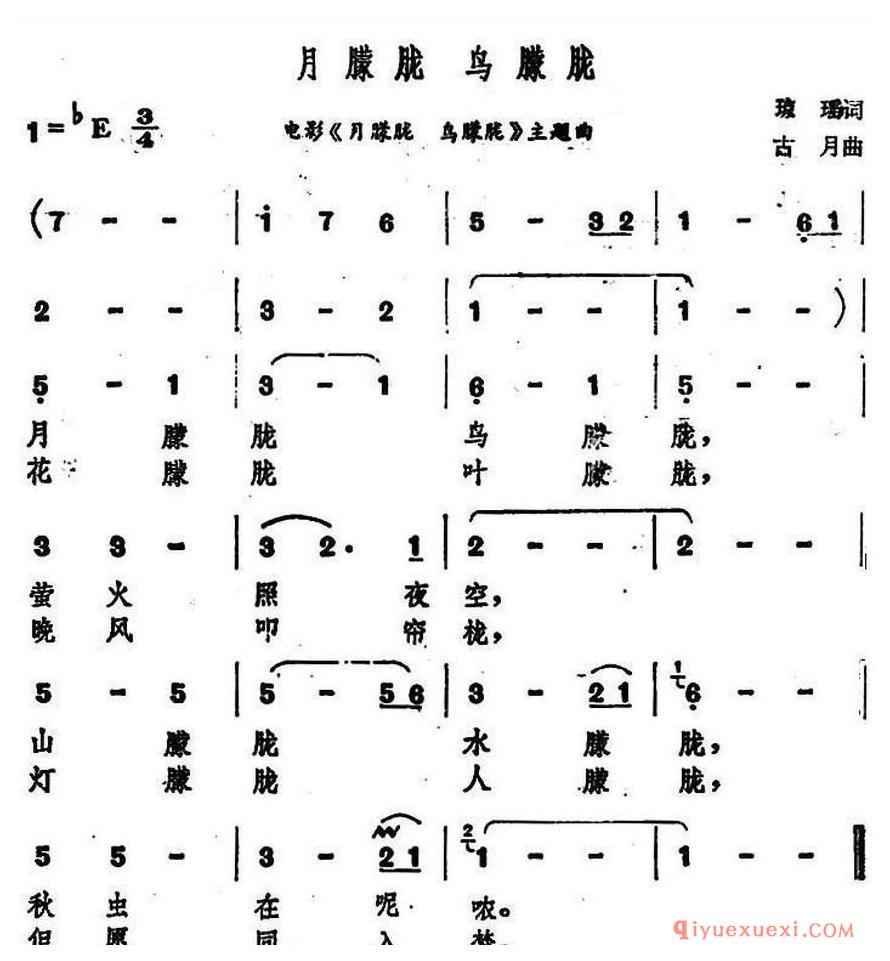 月朦胧 鸟朦胧
1=♭E 3/4
电影《月朦胧 鸟朦胧》主题曲
琼瑶词
古月曲
(7 - - | i 7 6 | 5 - 3 2 | 1 - 6 1 |
2 - - | 3 - 2 | 1 - - | 1 - - ) |
5 - 1 | 3 - 1 | 6 - 1 | 5 - - |
月 朦 胧 鸟 朦 胧,
花 朦 胧 叶 朦 胧,
3 3 - | 3 2. 1 | 2 - - | 2 - - |
萤 火 照 夜 空,
晚 风 叩 帘 栊,
5 - 5 | 5 - 5 6 | 3 - 2 1 | 1 6 - - |
山 朦 胧 水 朦 胧,
灯 朦 胧 人 朦 胧,
5 5 - | 3 - 2 1 | 2 1 - - | 1 - - |
秋 虫 在 呢 哝。
但 愿 同 入 梦。
qiyuexuexi.com